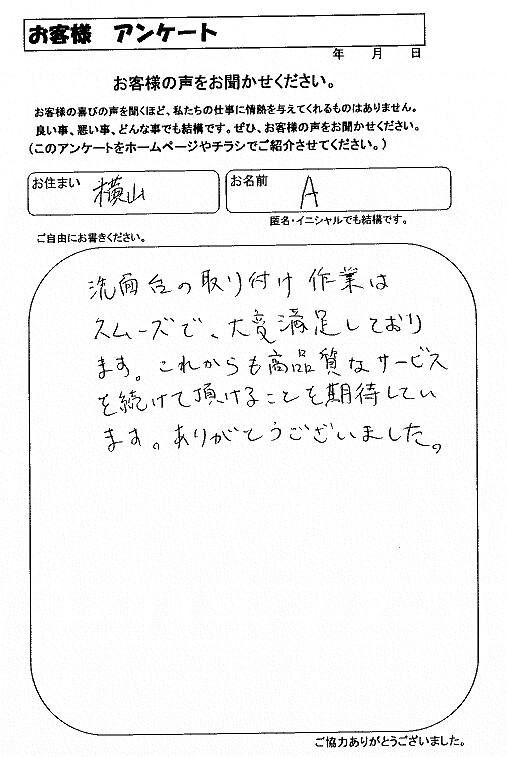 お客様 アンケート
年 月 日
お客様の声をお聞かせください。
お客様の喜びの声を聞くほど、私たちの仕事に情熱を与えてくれるものはありません。
良い事、悪い事、どんな事でも結構です。ぜひ、お客様の声をお聞かせください。
(このアンケートをホームページやチラシでご紹介させてください。)
お住まい 横山
お名前 A
匿名・イニシャルでも結構です。
ご自由にお書きください。
洗面台の取り付け作業は
スムーズで、大変満足しており
ます。これからも高品質なサービス
を続けて頂けることを期待してい
ます。ありがとうございました。
ご協力ありがとうございました。